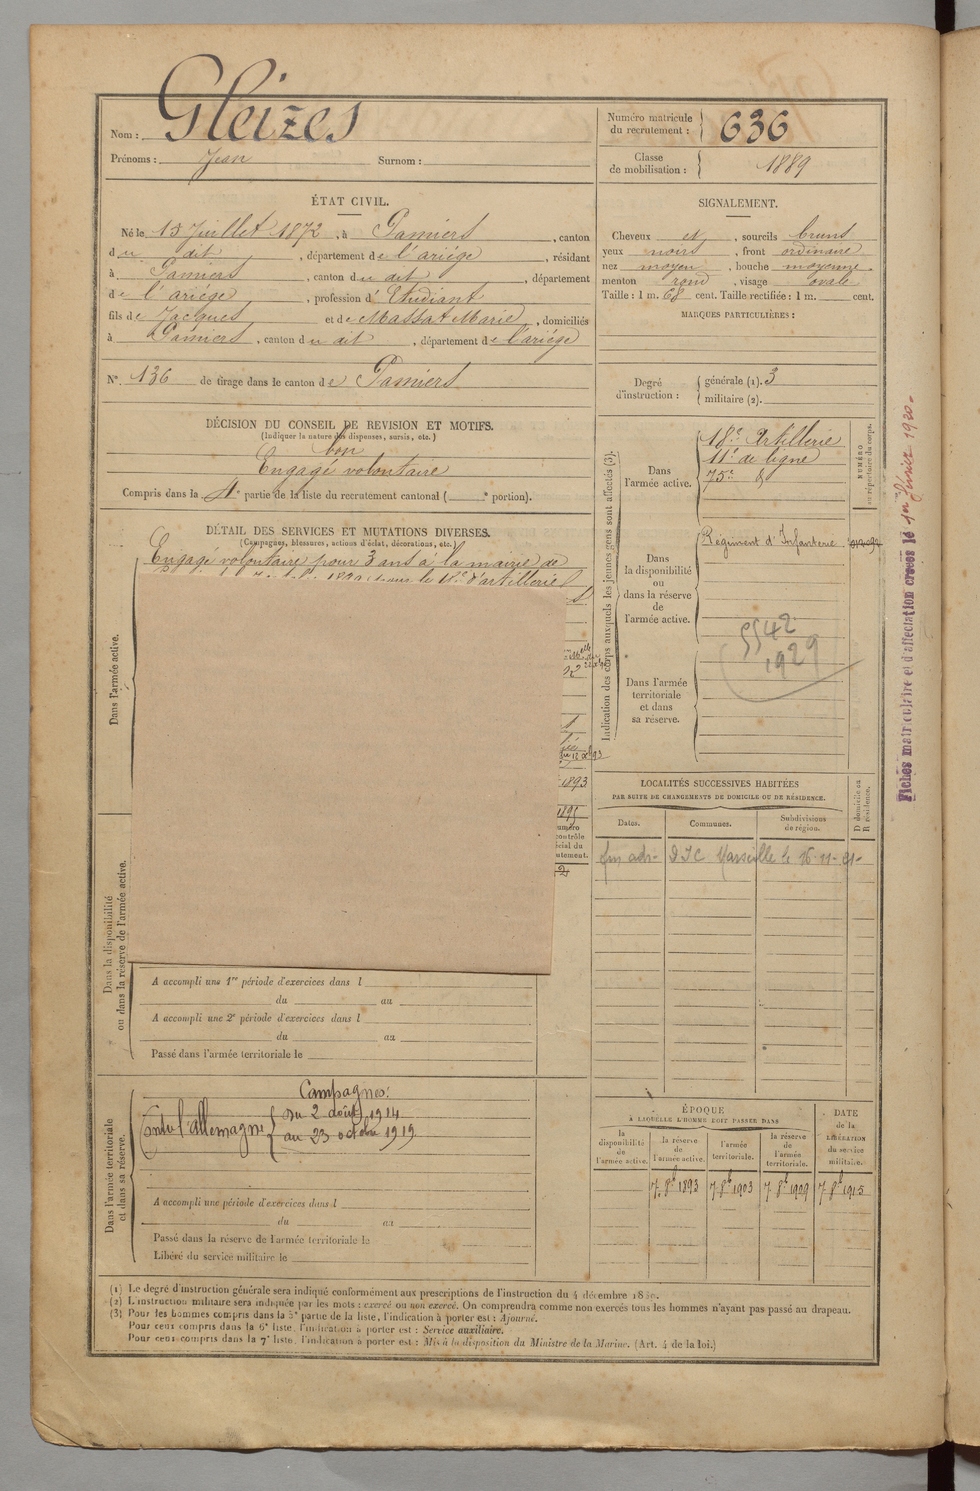 Nom : Gleizes
Prénoms : Jean Surnom :
Numéro matricule du recrutement : 636
Classe de mobilisation : 1889
ÉTAT CIVIL.
Né le 13 Juillet 1872, à Pamiers, canton
du dit, département de l'ariége, résidant
à Pamiers, canton du dit, département
de l'ariége, profession d' Etudiant
fils de Jacques et de Massat Marie, domiciliés
à Pamiers, canton du dit, département de l'ariége
N° 136 de tirage dans le canton de Pamiers
SIGNALEMENT.
Cheveux et, sourcils bruns
yeux noirs, front ordinaire
nez moyen, bouche moyenne
menton rond, visage ovale
Taille : 1 m. 68 cent. Taille rectifiée : 1 m. cent.
MARQUES PARTICULIÈRES :
Degré d'instruction : générale (1). 3
militaire (2).
DÉCISION DU CONSEIL DE REVISION ET MOTIFS.
(Indiquer la nature des dispenses, sursis, etc.)
bon
Engagé volontaire
Compris dans la 4e partie de la liste du recrutement cantonal ( e portion).
DÉTAIL DES SERVICES ET MUTATIONS DIVERSES.
(Campagnes, blessures, actions d'éclat, décorations, etc.)
Engagé volontaire pour 3 ans a la mairie de
d'artillerie
1893
1895
Dans l'armée active.
Dans la disponibilité
ou dans la réserve de l'armée active.
A accompli une 1re période d'exercices dans l
du au
A accompli une 2e période d'exercices dans l
du au
Passé dans l'armée territoriale le
Dans l'armée territoriale
et dans sa réserve.
Campagnes:
Contre l'allemagne
du 2 août 1914
au 23 octobre 1919
A accompli une période d'exercices dans l
du au
Passé dans la réserve de l'armée territoriale le
Libéré du service militaire le
Indication des corps auxquels les jeunes gens sont affectés (3).
NUMÉRO
au répertoire du corps.
Dans
l'armée active.
18e Artillerie
11e de ligne
75e
Dans
la disponibilité
ou
dans la réserve
de
l'armée active.
Régiment d'Infanterie
Dans l'armée
territoriale
et dans
sa réserve.
5542
1929
LOCALITÉS SUCCESSIVES HABITÉES
PAR SUITE DE CHANGEMENTS DE DOMICILE OU DE RÉSIDENCE.
Dates. Communes. Subdivisions
de région.
D domicile ou
R résidence.
Marseille le 16-11-
ÉPOQUE
À LAQUELLE L'HOMME DOIT PASSER DANS
la
disponibilité
de
l'armée active.
la réserve
de
l'armée active.
l'armée
territoriale.
la réserve
de
l'armée
territoriale.
DATE
de la
LIBÉRATION
du service
militaire.
7 8bre 1893 7 8bre 1903 7 8bre 1909 7 8bre 1915
Fiches matriculaire et d'affectation créées le 1er février 1920.
(1) Le degré d'instruction générale sera indiqué conformément aux prescriptions de l'instruction du 4 décembre 1889.
(2) L'instruction militaire sera indiquée par les mots : exercé ou non exercé. On comprendra comme non exercés tous les hommes n'ayant pas passé au drapeau.
(3) Pour les hommes compris dans la 5e partie de la liste, l'indication à porter est : Ajourné.
Pour ceux compris dans la 6e liste, l'indication à porter est : Service auxiliaire.
Pour ceux compris dans la 7e liste, l'indication à porter est : Mis à la disposition du Ministre de la Marine. (Art. 4 de la loi.)